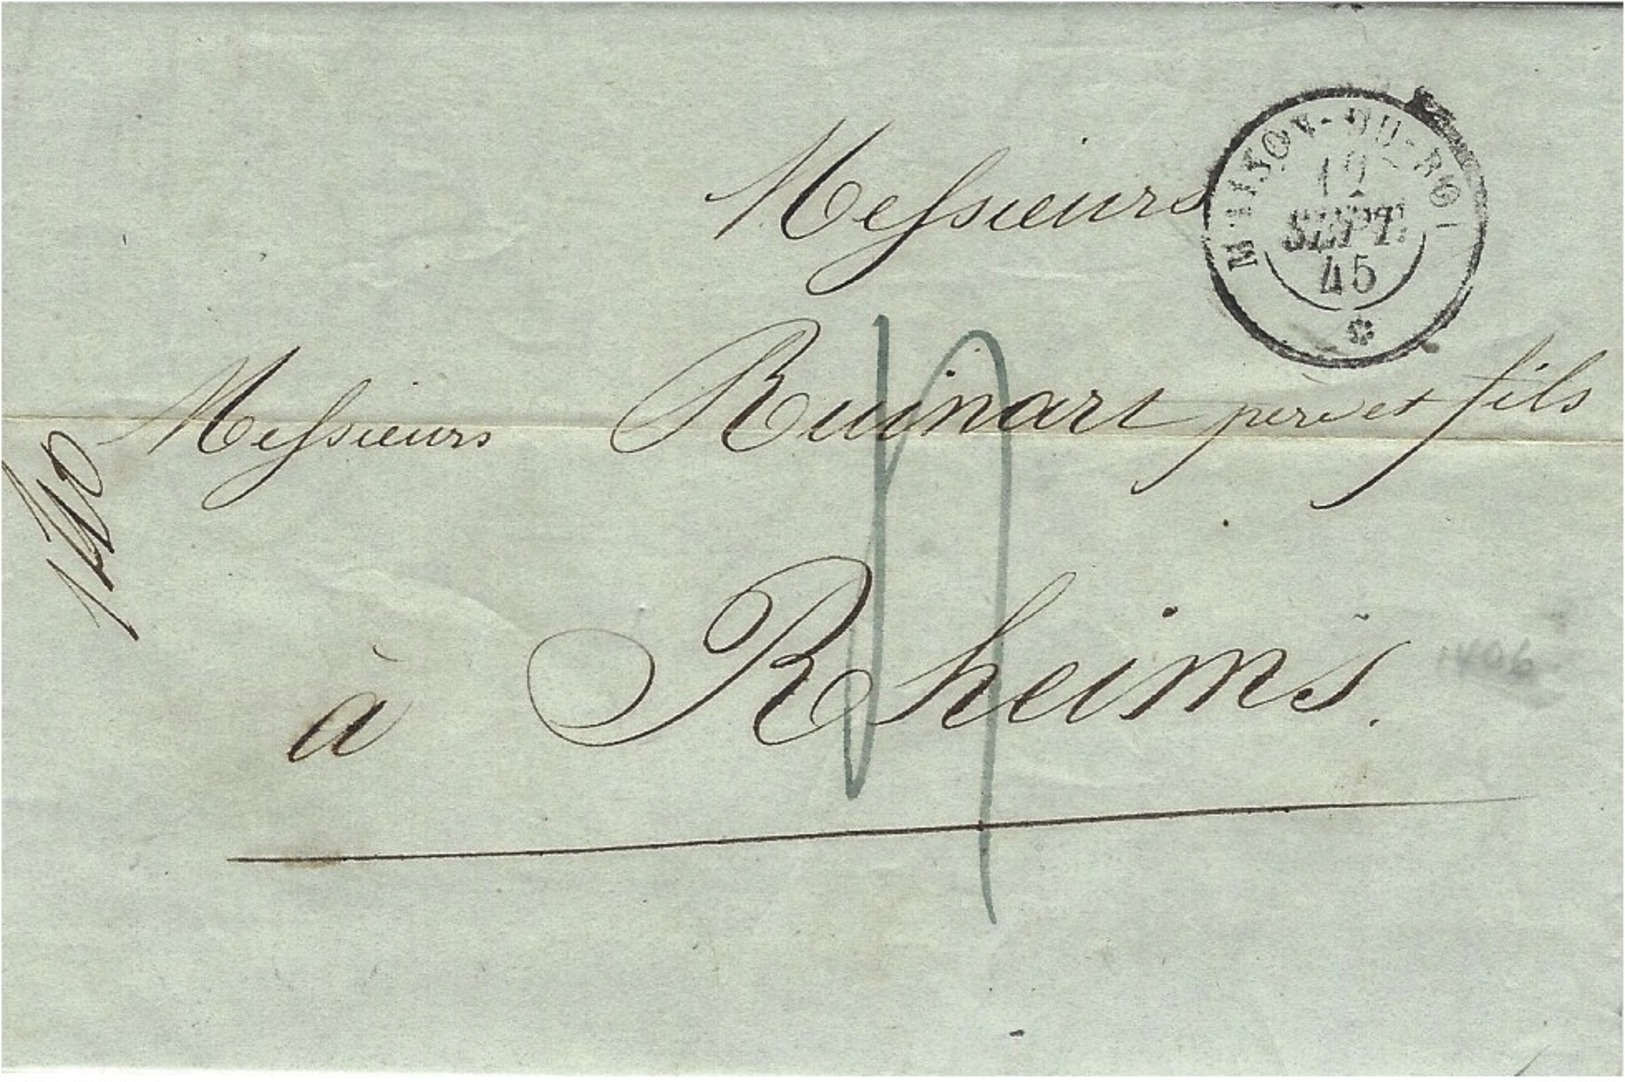 Messieurs
MAISON-DU-ROI
12
SEPT.
45
Messieurs Ruinart pere et fils
à Rheims.
1406